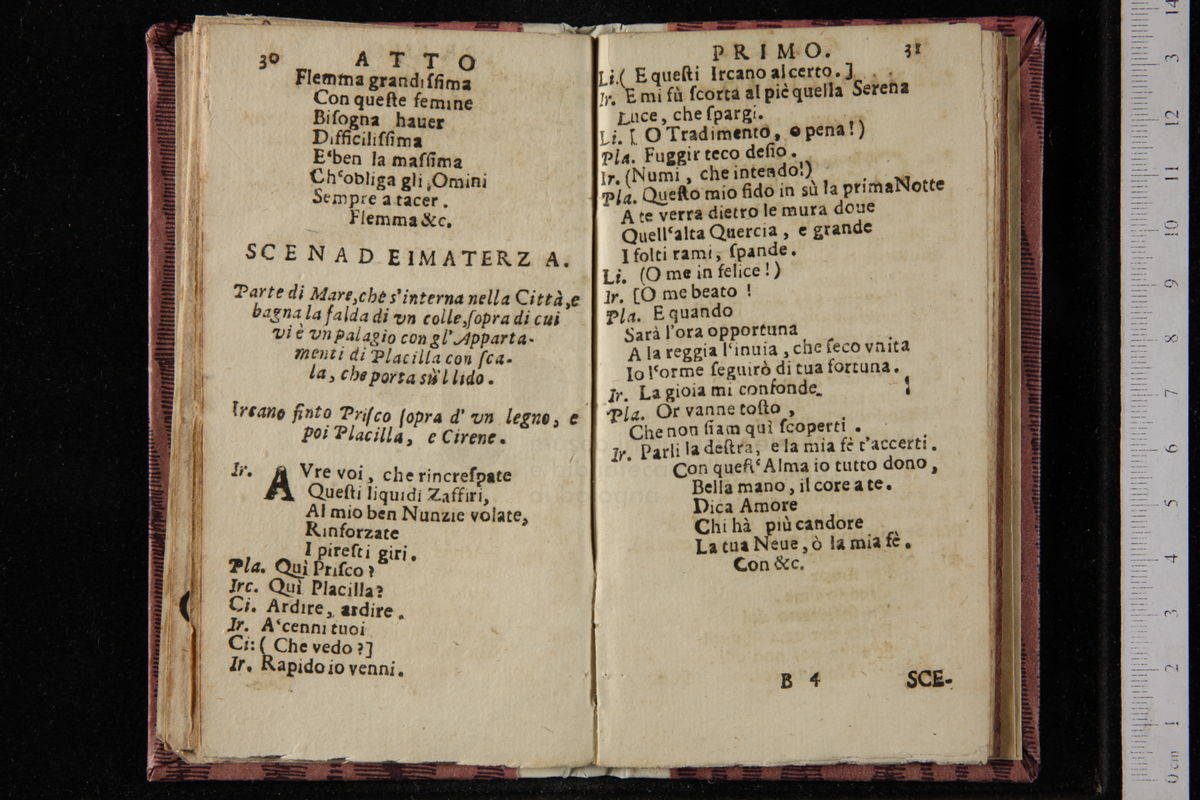 30 ATTO
Flemma grandiſſima
Con queſte femine
Biſogna hauer
Difficiliſſima
E‘ben la maſſima
Ch‘obliga gli Omini
Sempre a tacer.
Flemma &c.
SCENA DEIMATERZA.
Parte di Mare, che s'interna nella Città, e
bagna la falda di vn colle, ſopra di cui
vi è vn palagio con gl' Apparta-
menti di Placilla con ſca-
la, che porta sù'l lido.
Ircano finto Priſco ſopra d' vn legno, e
poi Placilla, e Cirene.
Ir. AVre voi, che rincreſpate
Queſti liquidi Zaffiri,
Al mio ben Nunzie volate,
Rinforzate
I pireſti giri.
Pla. Quì Priſco?
Irc. Quì Placilla?
Ci. Ardire, ardire.
Ir. A‘cenni tuoi
Ci: ( Che vedo?]
Ir. Rapido io venni.
PRIMO. 31
Li.( E queſti Ircano al certo.]
Ir. E mi fù ſcorta al piè quella Serena
Luce, che ſpargi.
Li. [ O Tradimento, o pena!)
Pla. Fuggir teco deſio.
Ir. (Numi, che intendo!)
Pla. Queſto mio fido in sù la prima Notte
A te verra dietro le mura doue
Quell‘alta Quercia, e grande
I folti rami, ſpande.
Li. (O me in felice!)
Ir. [O me beato !
Pla. E quando
Sarà l‘ora opportuna
A la reggia l‘inuia, che ſeco vnita
Io l‘orme ſeguirò di tua fortuna.
Ir. La gioia mi confonde. !
Pla. Or vanne toſto,
Che non ſiam quì ſcoperti.
Ir. Parli la deſtra, e la mia fè t'accerti.
Con queſt‘Alma io tutto dono,
Bella mano, il core a te.
Dica Amore
Chi hà più candore
La tua Neue, ò la mia fè.
Con &c.
B 4 SCE-